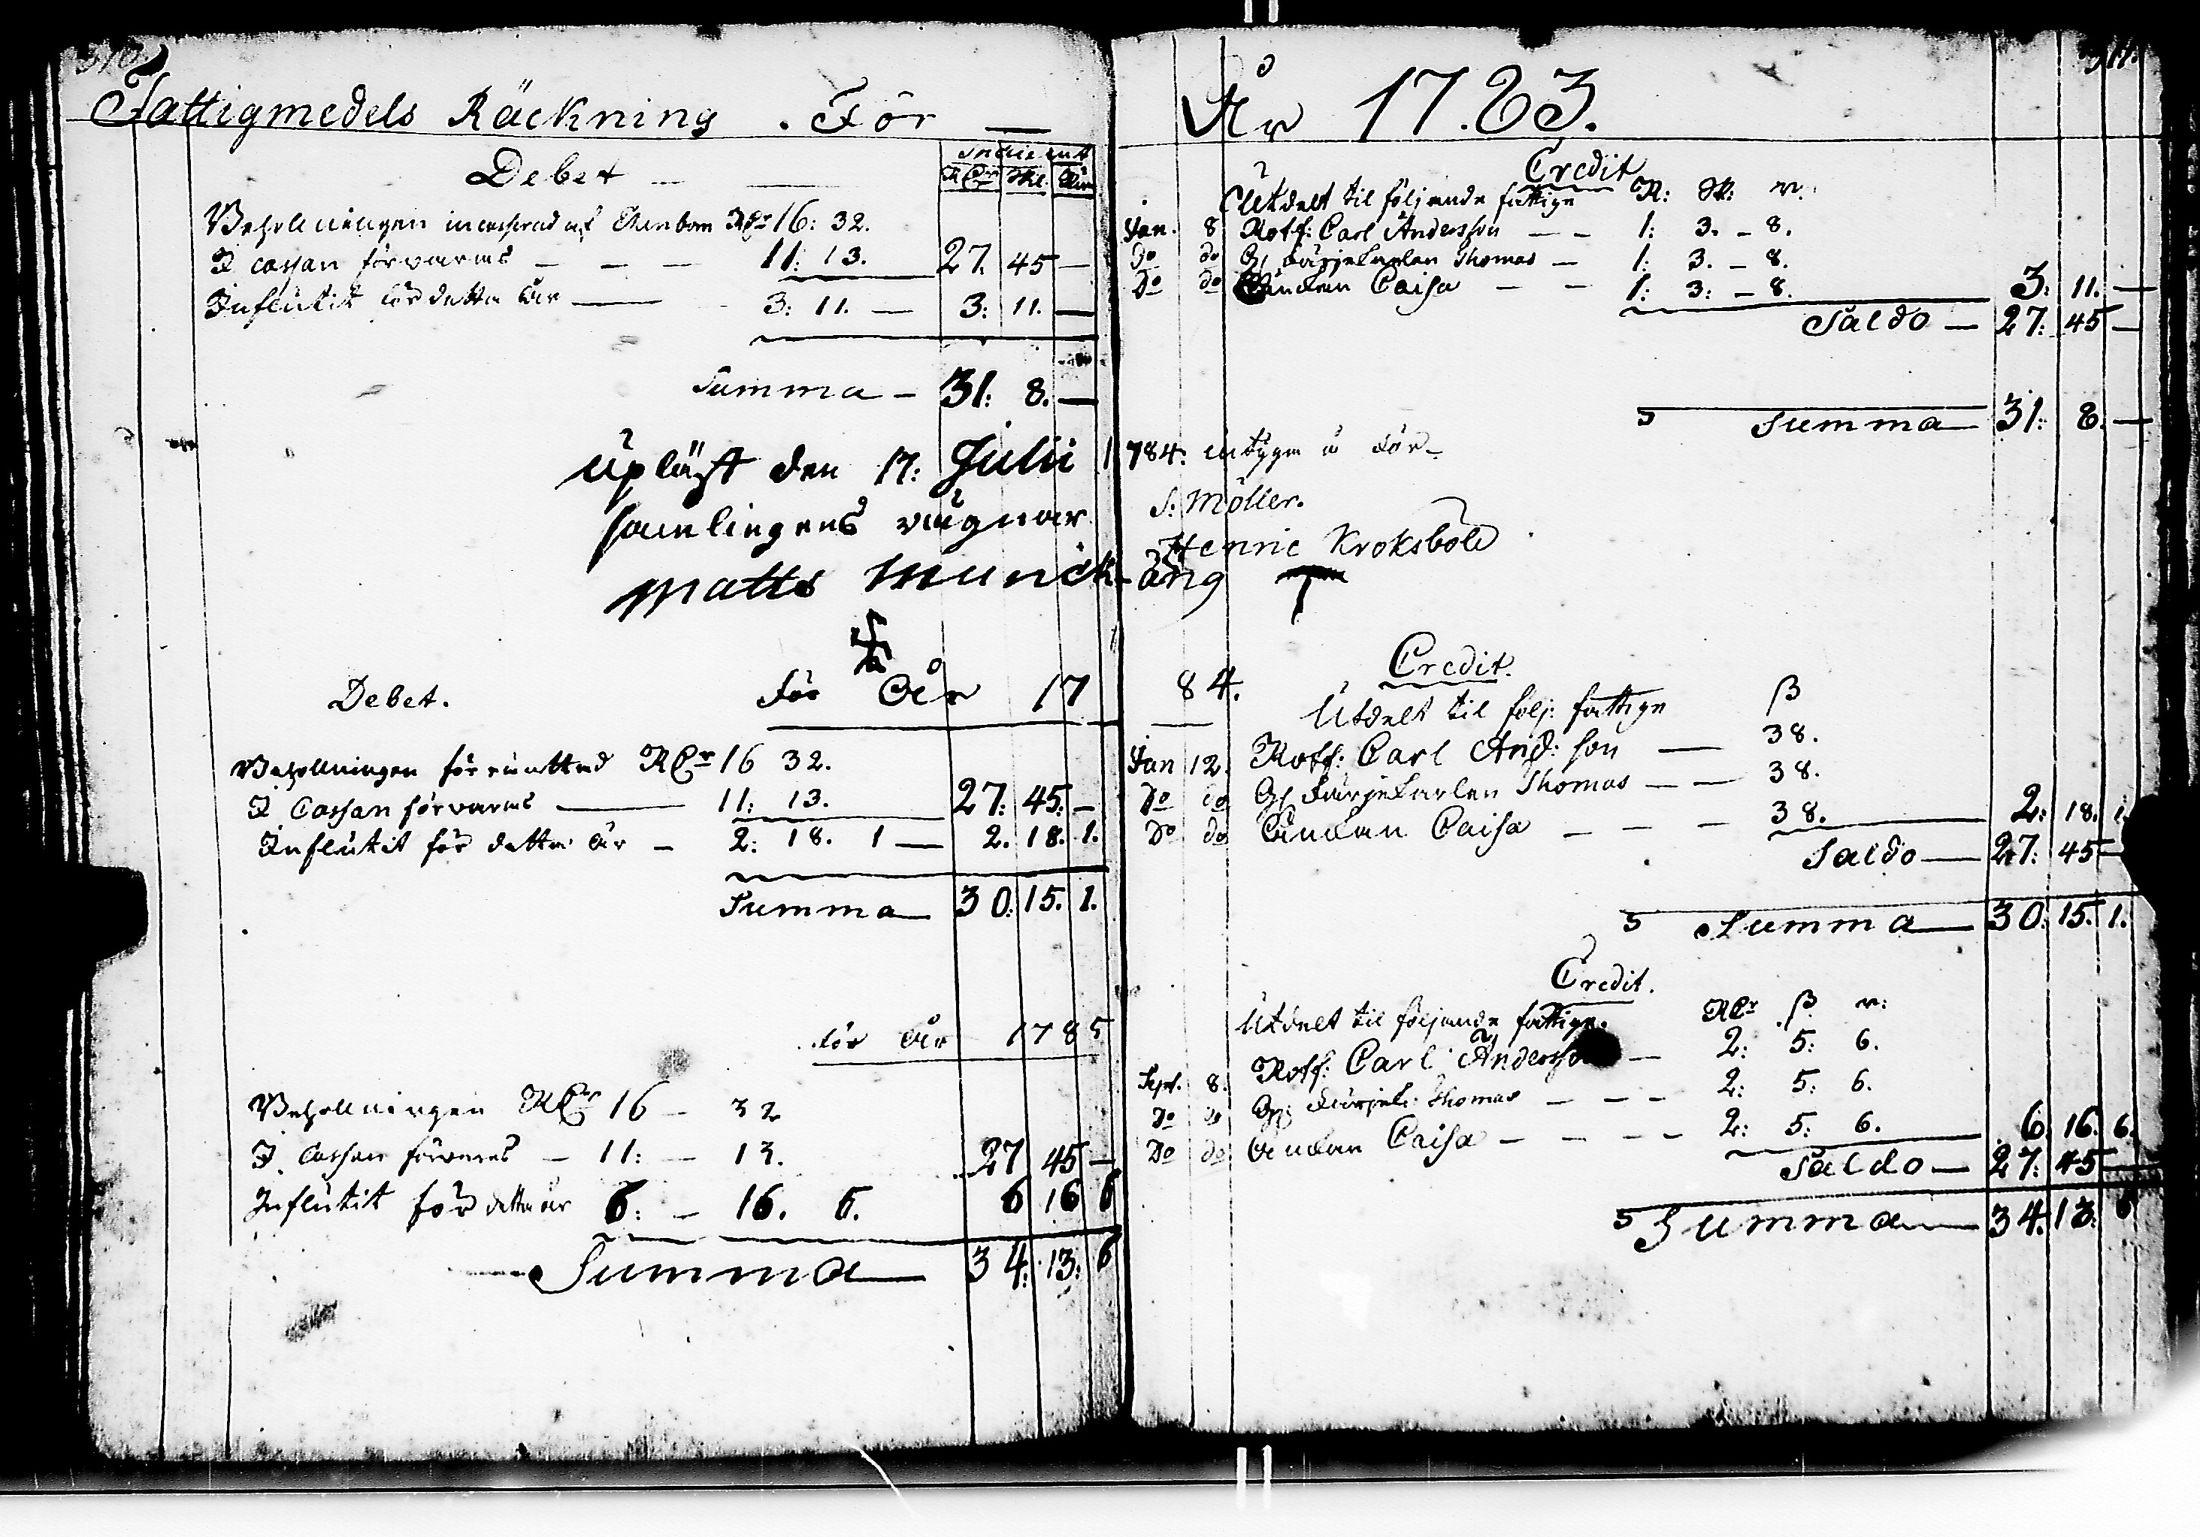 310
Fattigmedels Räckning . För —
Debet — —
RDr Skl.
Behollningen RDr 16: 32.
I cassan förvaras — — — 11: 13. 27. 45 —
Influtit för detta år — 3: 11. — 3: 11. —
Summa — 31: 8. —
Upläst den 17: Julii 1
samlingens vägnar
Matts Munck-
Debet. för År 17
Behollningen RDr 16 32.
I Cassan förvaras — 11: 13. 27: 45: —
Influtit för detta år — 2: 18. 1 — 2. 18. 1.
Summa 30: 15. 1.
för år 1785
Behollningen RDr 16 — 32
I Cassan förvaras — 11: — 13. 27 45 —
Influtit för detta år 6: — 16. 6. 6 16 6
Summa 34: 13: 6
311.
År 1783.
Credit
Utdelt til följande fattige R: Sk: r:
Jan. 8 Rotf: Carl Andersson — — 1: 3. — 8.
Do do Gl Färjekarlen Thomas — 1: 3. — 8.
Do do Änkan Caisa — — 1: 3: — 8. 3: 11. —
Saldo — 27: 45 —
Summa 31: 8. —
784: intygin å För-
S: Möller.
Henric Kroksbole
äng
84. Credit.
Utdelt til følj: fattige ß
Jan 12. Rotf: Carl And: son — 38.
Do do Gl Färjekarlen Thomas — — 38.
Do do Änkan Caisa — — — 38. 2: 18. 1.
Saldo — 27: 45 —
Summa — 30: 15. 1.
Credit.
Utdelt til följande fattige. RDr ß r:
Rotf: Carl Andersson — 2: 5: 6.
Sept. 8. Gl: Färjek: Thomas — — — 2: 5: 6.
Do do
Do do Änkan Caisa — — — — 2: 5: 6. 6. 16. 6.
Saldo — 27: 45 —
Summa 34. 13: 6